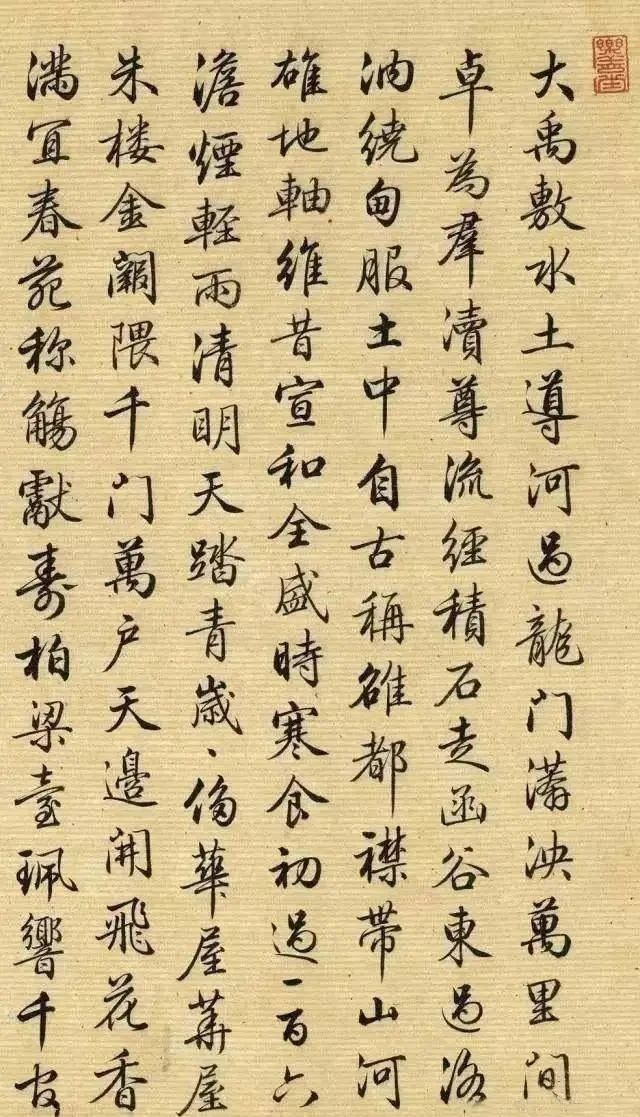 大禹敷水土導河過龍门泱萬里间
卓為羣瀆尊流經積石走函谷東過洛
汭繞甸服土中自古稱雄都襟帶山河
雄地軸維昔宣和全盛時寒食初過一百六
澹煙輕雨清明天踏青歲、侈華屋華屋
朱楼金闕隈千门萬户天邊開飛花香
滿宜春苑称觴獻壽柏梁臺珮響千官